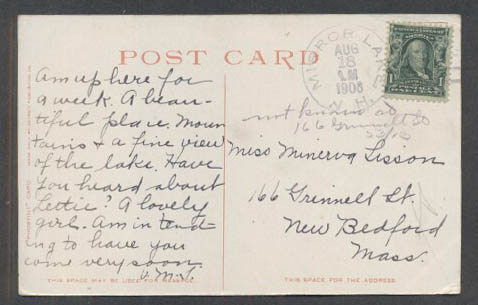 POST CARD
Am up here for
a week. A beau-
tiful place. Moun
tains & a fine view
of the lake. Have
you heard about
Lettie? A lovely
girl. Am intend
ing to have you
come very soon.
THIS SPACE MAY BE USED FOR MESSAGE
MIRROR LAKE
AUG
18
AM
1906
N. H.
not known at
166 Grinnell St
Miss Minerva Sisson
166 Grinnell St.
New Bedford
Mass.
THIS SPACE FOR THE ADDRESS